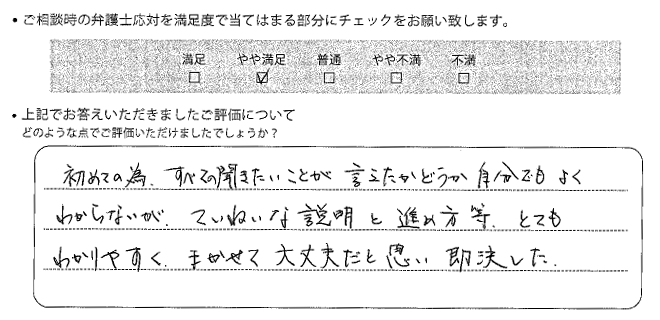 ・ご相談時の弁護士応対を満足度で当てはまる部分にチェックをお願い致します。
満足 やや満足 普通 やや不満 不満
□ ☑ □ □ □
・上記でお答えいただきましたご評価について
どのような点でご評価いただけましたでしょうか?
初めての為、すべての聞きたいことが言えたかどうか自分でもよく
わからないが、ていねいな説明と進め方等、とても
わかりやすく、まかせて大丈夫だと思い即決した。